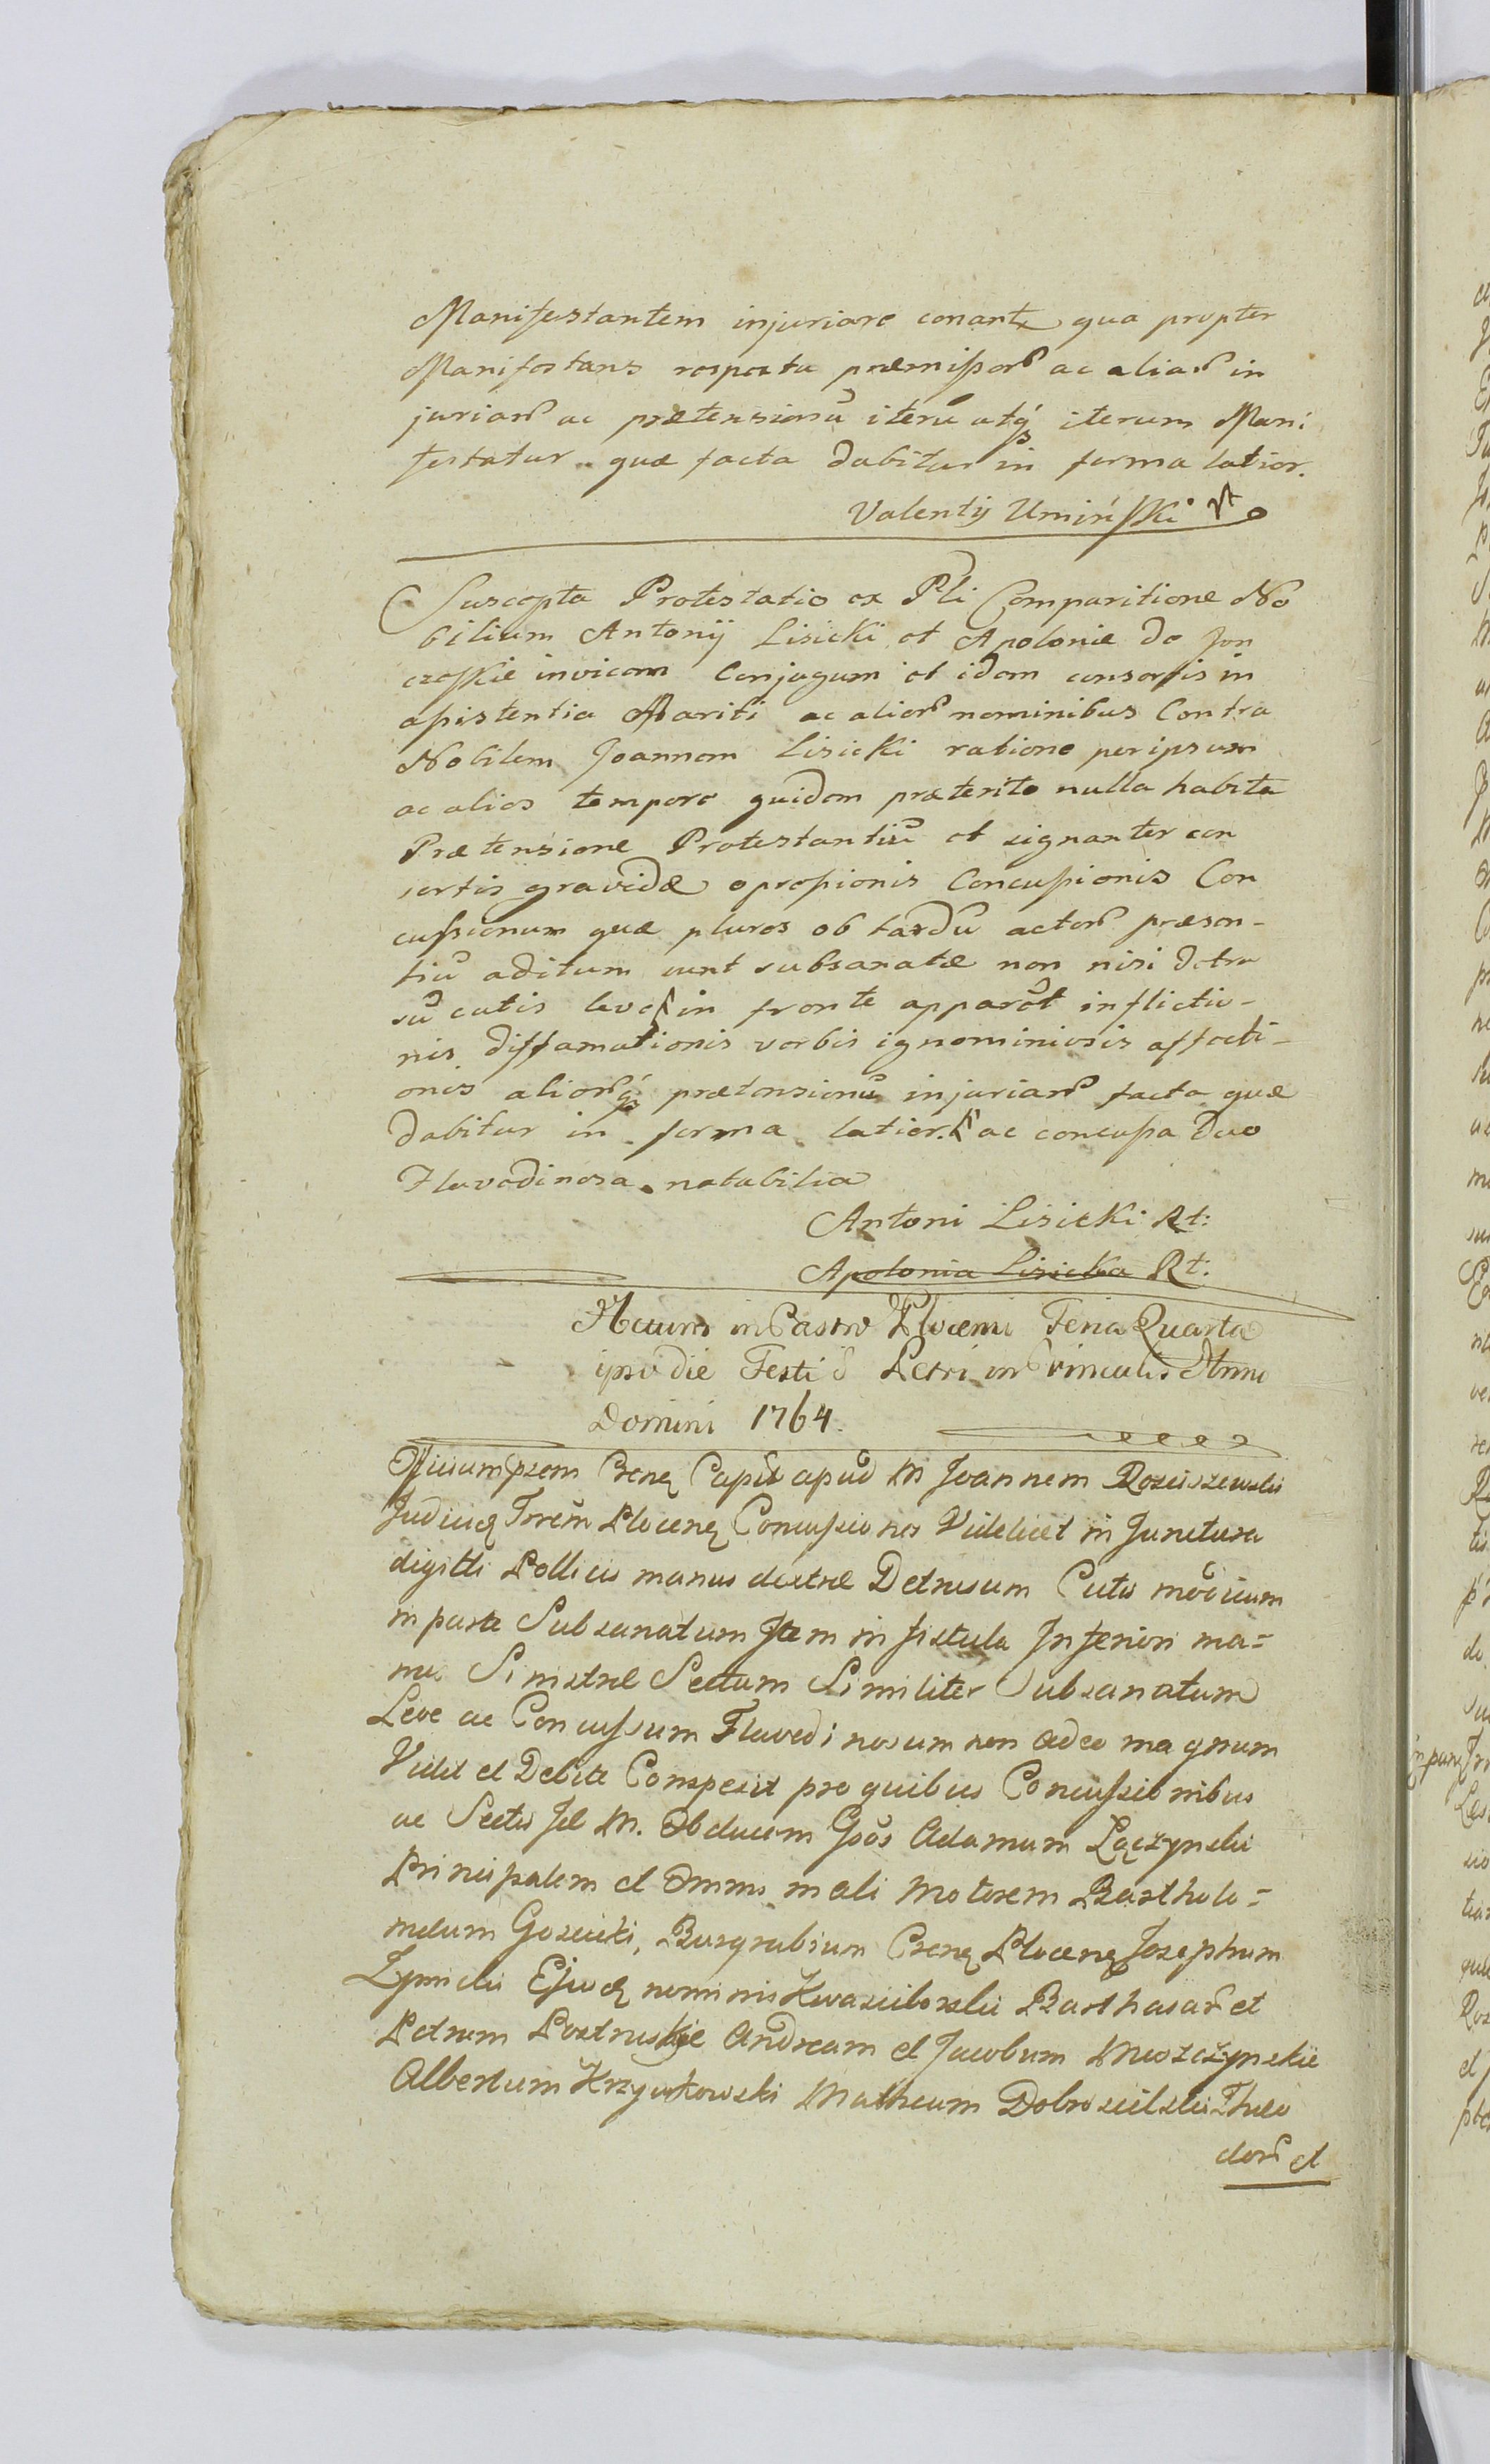 Manifestantem injuriare conant qua propter
Manifestans respectu præmissor ac aliar in
juriar ac prætensionū iterū atq iterum Mani
festatur quæ facta dabitur in forma latior.
Valentÿ Umińsski
Suscepta Protestatio ex Pli Comparitione No
bilium Antonÿ Lisicki et Apoloniæ de Jon
czoskie invicem Conjugum et idem consortis in
assistentia Mariti ac alior nominibus Contra
Nobilem Joannem Lisicki ratione per ipsum
ac alios tempore quidem præterito nulla habita
Prætensione Protestantiū et signanter con
sortis gravidæ opressionis Concussionis Con
cussionum quæ plures ob tardū actor præsen-
tiū aditum sunt subsanatæ non nisi detru
sū cutis leve in fronte apparet inflictio-
nis diffamationis verbis ignominiosis affecti-
onis aliorq prætensionū injuriar facta quæ
dabitur in forma latior. ac concussa duo
Flavedinosa notabilia
Antoni Lisicki Rt:
Apolonia Lisicka Rt:
Actum in Castro Plocensi Feria Quarta
ipso die Festi S Petri in vinculis Anno
Domini 1764.
Officium præns Crene Capit apud M Joannem Rosciszewski
Judicē Trrem Plocene Concussiones Videlicet in Junctura
digitti Pollicis manus dextræ Detrusum Cutis modicum
in parte Subsanatum Item in fistula Inferiori ma=
nus Sinistræ Sectum Similiter Subsanatum
Leve ac Concussum Flavedinosum non adeo magnum
Vidit et Debite Conspexit pro quibus Concussionibus
ac Sectis Id M. Obducem Gsos Adamum Łączynski
Principalem et Omnis mali Motorem Bartholo=
meum Gosciski, Burgrabium Crene Plocene Josephum
Zynicki Ejusd nominis Kwasciborski Barthasar et
Petrum Postruskie Andream et Jacobum Mioszczynskie
Albertum Krzywkowski Matheum Dobrosielski Theo
dor et